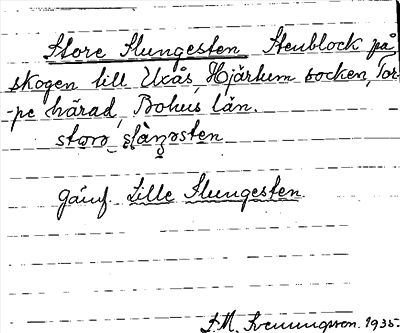 Store Slungesten Stenblock på
skogen till Uxås, Hjärtum socken, Tor-
-pe härad, Bohus län.
storo slàŋosten
Jämf. Lille Slungesten.
F.M. Svenningsson. 1935.